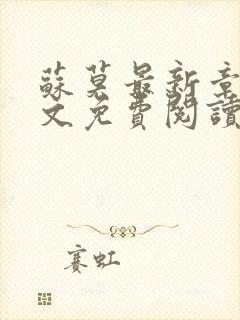 蘇莫最新章
文免費閱讀
賽虹